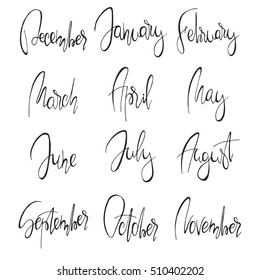 December January February
March April May
June July August
September October November
shutterstock.com · 510402202